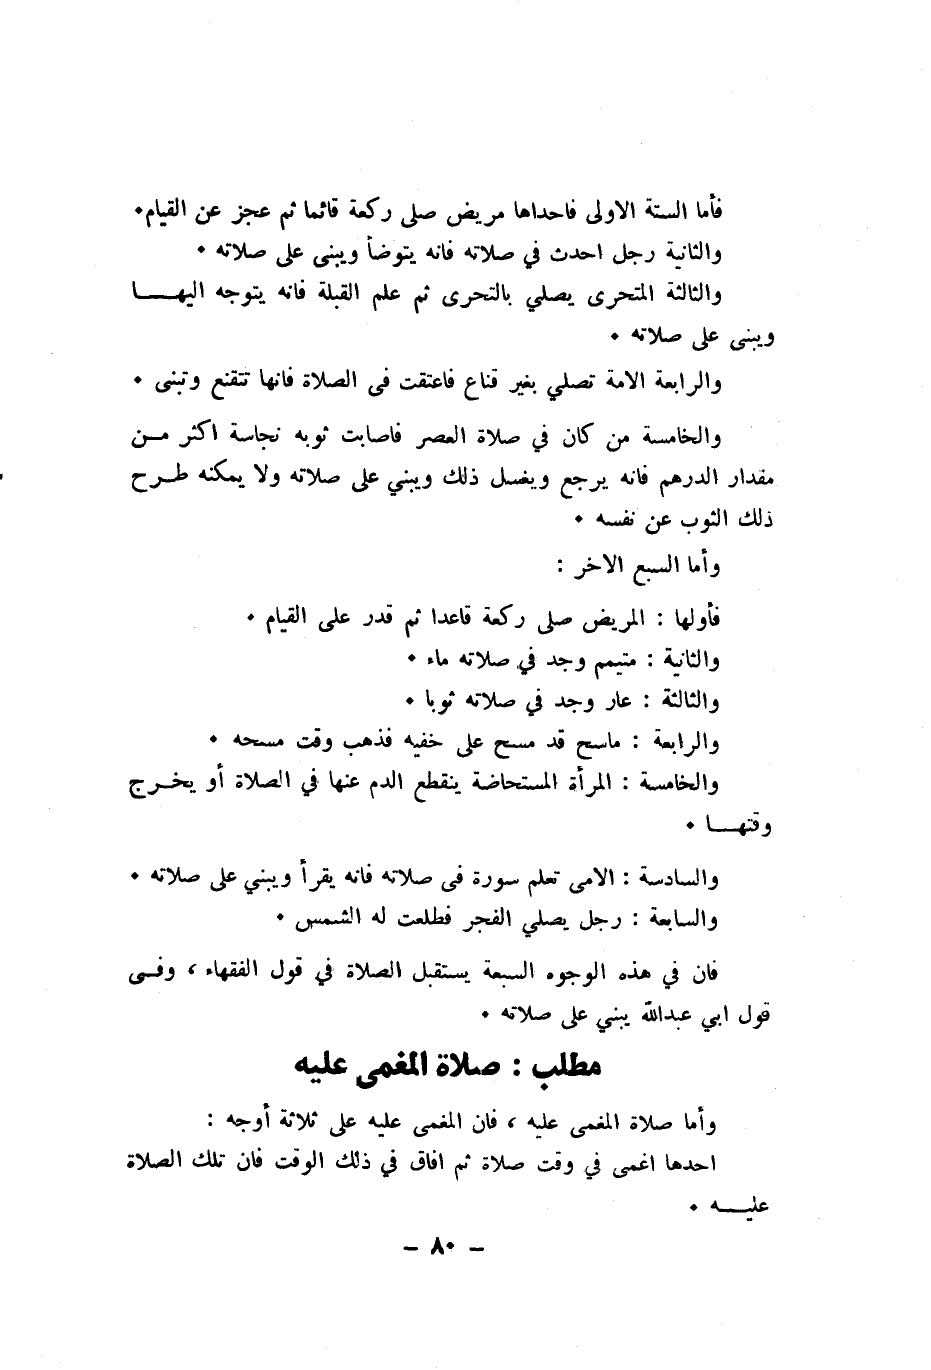 فأما الستة الاولى فاحداها مريض صلى ركعة قائما ثم عجز عن القيام.
والثانية رجل احدث في صلاته فانه يتوضأ ويبنى على صلاته .
والثالثة المتحرى يصلي بالتحرى ثم علم القبلة فانه يتوجه اليهـــا
ويبنى على صلاته .
والرابعة الامة تصلي بغير قناع فاعتقت فى الصلاة فانها تتقنع وتبنى .
والخامسة من كان في صلاة العصر فاصابت ثوبه نجاسة اكثر مـن
مقدار الدرهم فانه يرجع ويغسل ذلك ويبني على صلاته ولا يمكنه طـرح
ذلك الثوب عن نفسه .
وأما السبع الاخر :
فأولها : المريض صلى ركعة قاعدا ثم قدر على القيام .
والثانية : متيمم وجد في صلاته ماء .
والثالثة : عار وجد في صلاته ثوبا .
والرابعة : ماسح قد مسح على خفيه فذهب وقت مسحه .
والخامسة : المرأة المستحاضة ينقطع الدم عنها في الصلاة أو يخـرج
وقتهـــا .
والسادسة : الامى تعلم سورة فى صلاته فانه يقرأ ويبني على صلاته .
والسابعة : رجل يصلي الفجر فطلعت له الشمس .
فان في هذه الوجوه السبعة يستقبل الصلاة في قول الفقهاء ، وفـى
قول ابي عبدالله يبني على صلاته .
مطلب : صلاة المغمى عليه
وأما صلاة المغمى عليه ، فان المغمى عليه على ثلاثة أوجه :
احدها اغمى في وقت صلاة ثم افاق في ذلك الوقت فان تلك الصلاة
عليـــه .
– ٨٠ –